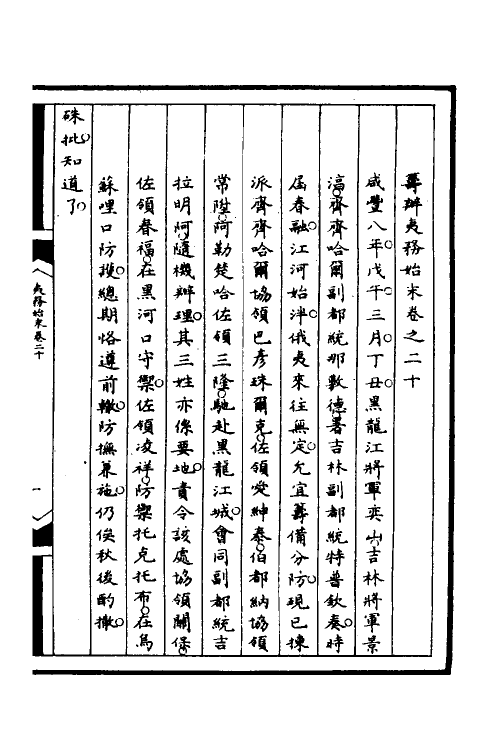 籌辦夷務始末卷之二十
咸豐八年戊午三月丁丑黑龍江將軍奕山吉林將軍景
淳齊齊哈爾副都統那敷德署吉林副都統特普欽奏時
屆春融江河始泮俄夷來往無定允宜籌備分防現已揀
派齊齊哈爾協領巴彥珠爾克佐領愛紳泰伯都納協領
常陞阿勒楚哈佐領三隆馳赴黑龍江城會同副都統吉
拉明阿隨機辦理其三姓亦係要地責令該處協領關保
佐領春福在黑河口守禦佐領凌祥防禦托克托布在烏
蘇哩口防護總期恪遵前轍防撫兼施仍俟秋後酌撤
硃批知道了
夷務始末卷二十
一